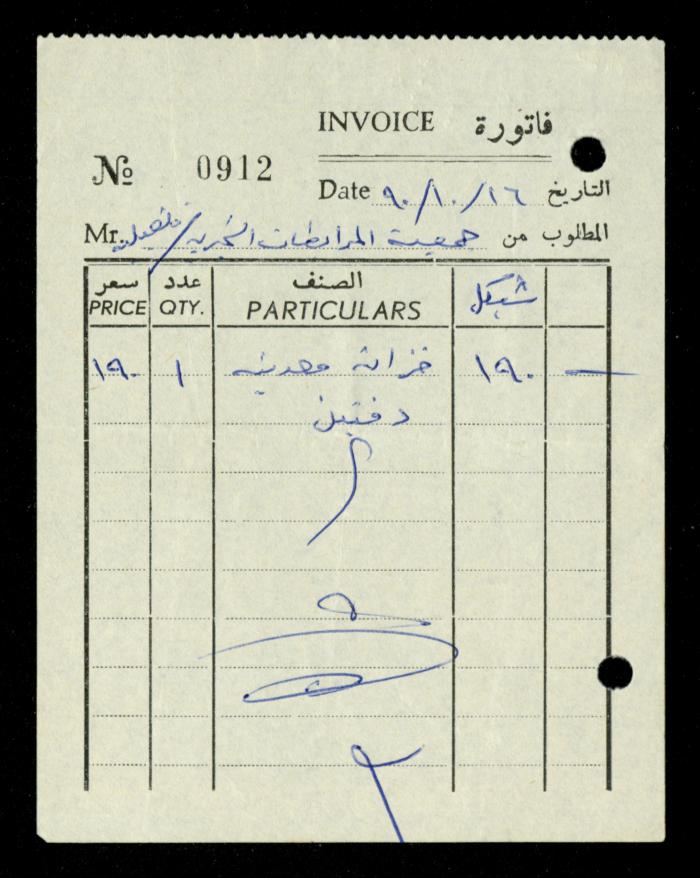 INVOICE فاتورة
№ 0912
Date ٩٠/١٠/١٦ التاريخ
Mr. جمعية المرابطات الخيرية / قلقيلية المطلوب من
سعر عدد الصنف شيكل
PRICE QTY. PARTICULARS
١٩٠ ١ خزانة معدنية ١٩٠ —
دفتين